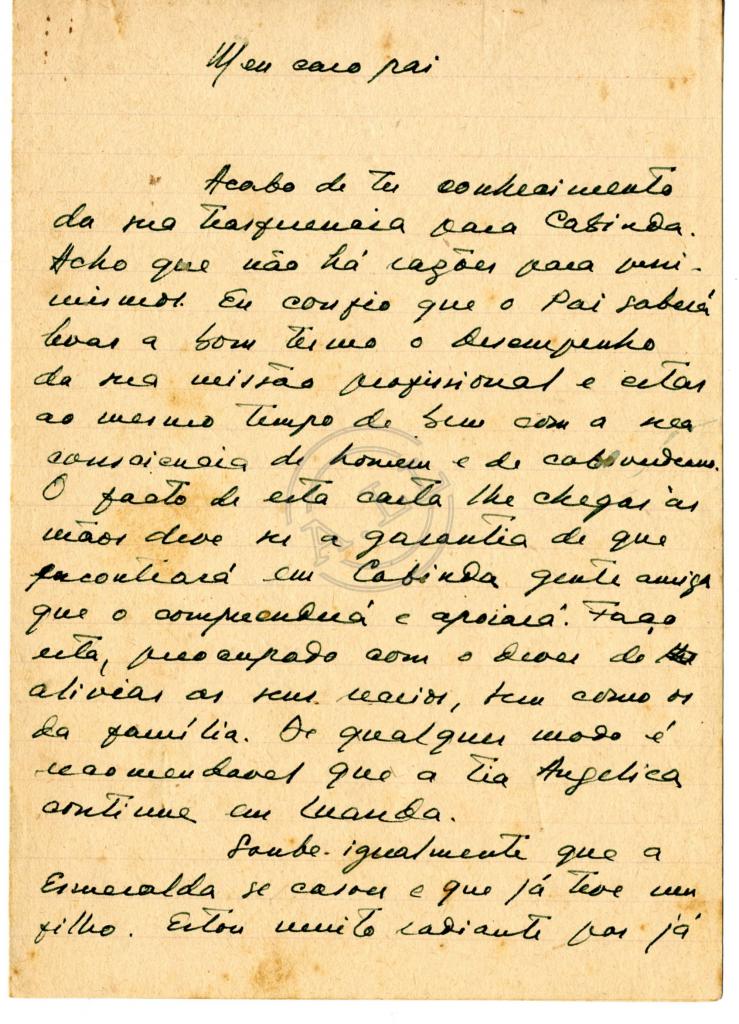 Meu caro pai
Acabo de ter conhecimento
da sua trasferencia para Cabinda.
Acho que não há razões para pessi-
mismos. Eu confio que o Pai saberá
levar a bom termo o desempenho
da sua missão profissional e estar
ao mesmo tempo de bem com a sua
consciencia de homem e de caboverdeano.
O facto de esta carta lhe chegar às
mãos deve ser a garantia de que
encontrará em Cabinda gente amiga
que o compreenderá e apoiará. Faço
esta, preocupado com o dever de
aliviar os seus receios, bem como os
da família. De qualquer modo é
recomendavel que a tia Angelica
continue em Luanda.
Soube igualmente que a
Esmeralda se casou e que já teve um
filho. Estou muito radiante por já